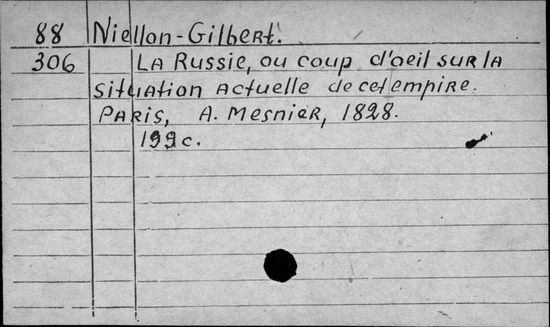 88 Niellon-Gilbert.
306 La Russie, ou coup d'oeil sur la
situation actuelle de cet empire.
Paris, A. Mesnier, 1828.
199c.